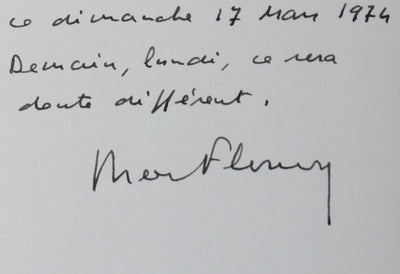 ce dimanche 17 Mars 1974
Demain, lundi, ce sera
doute différent.